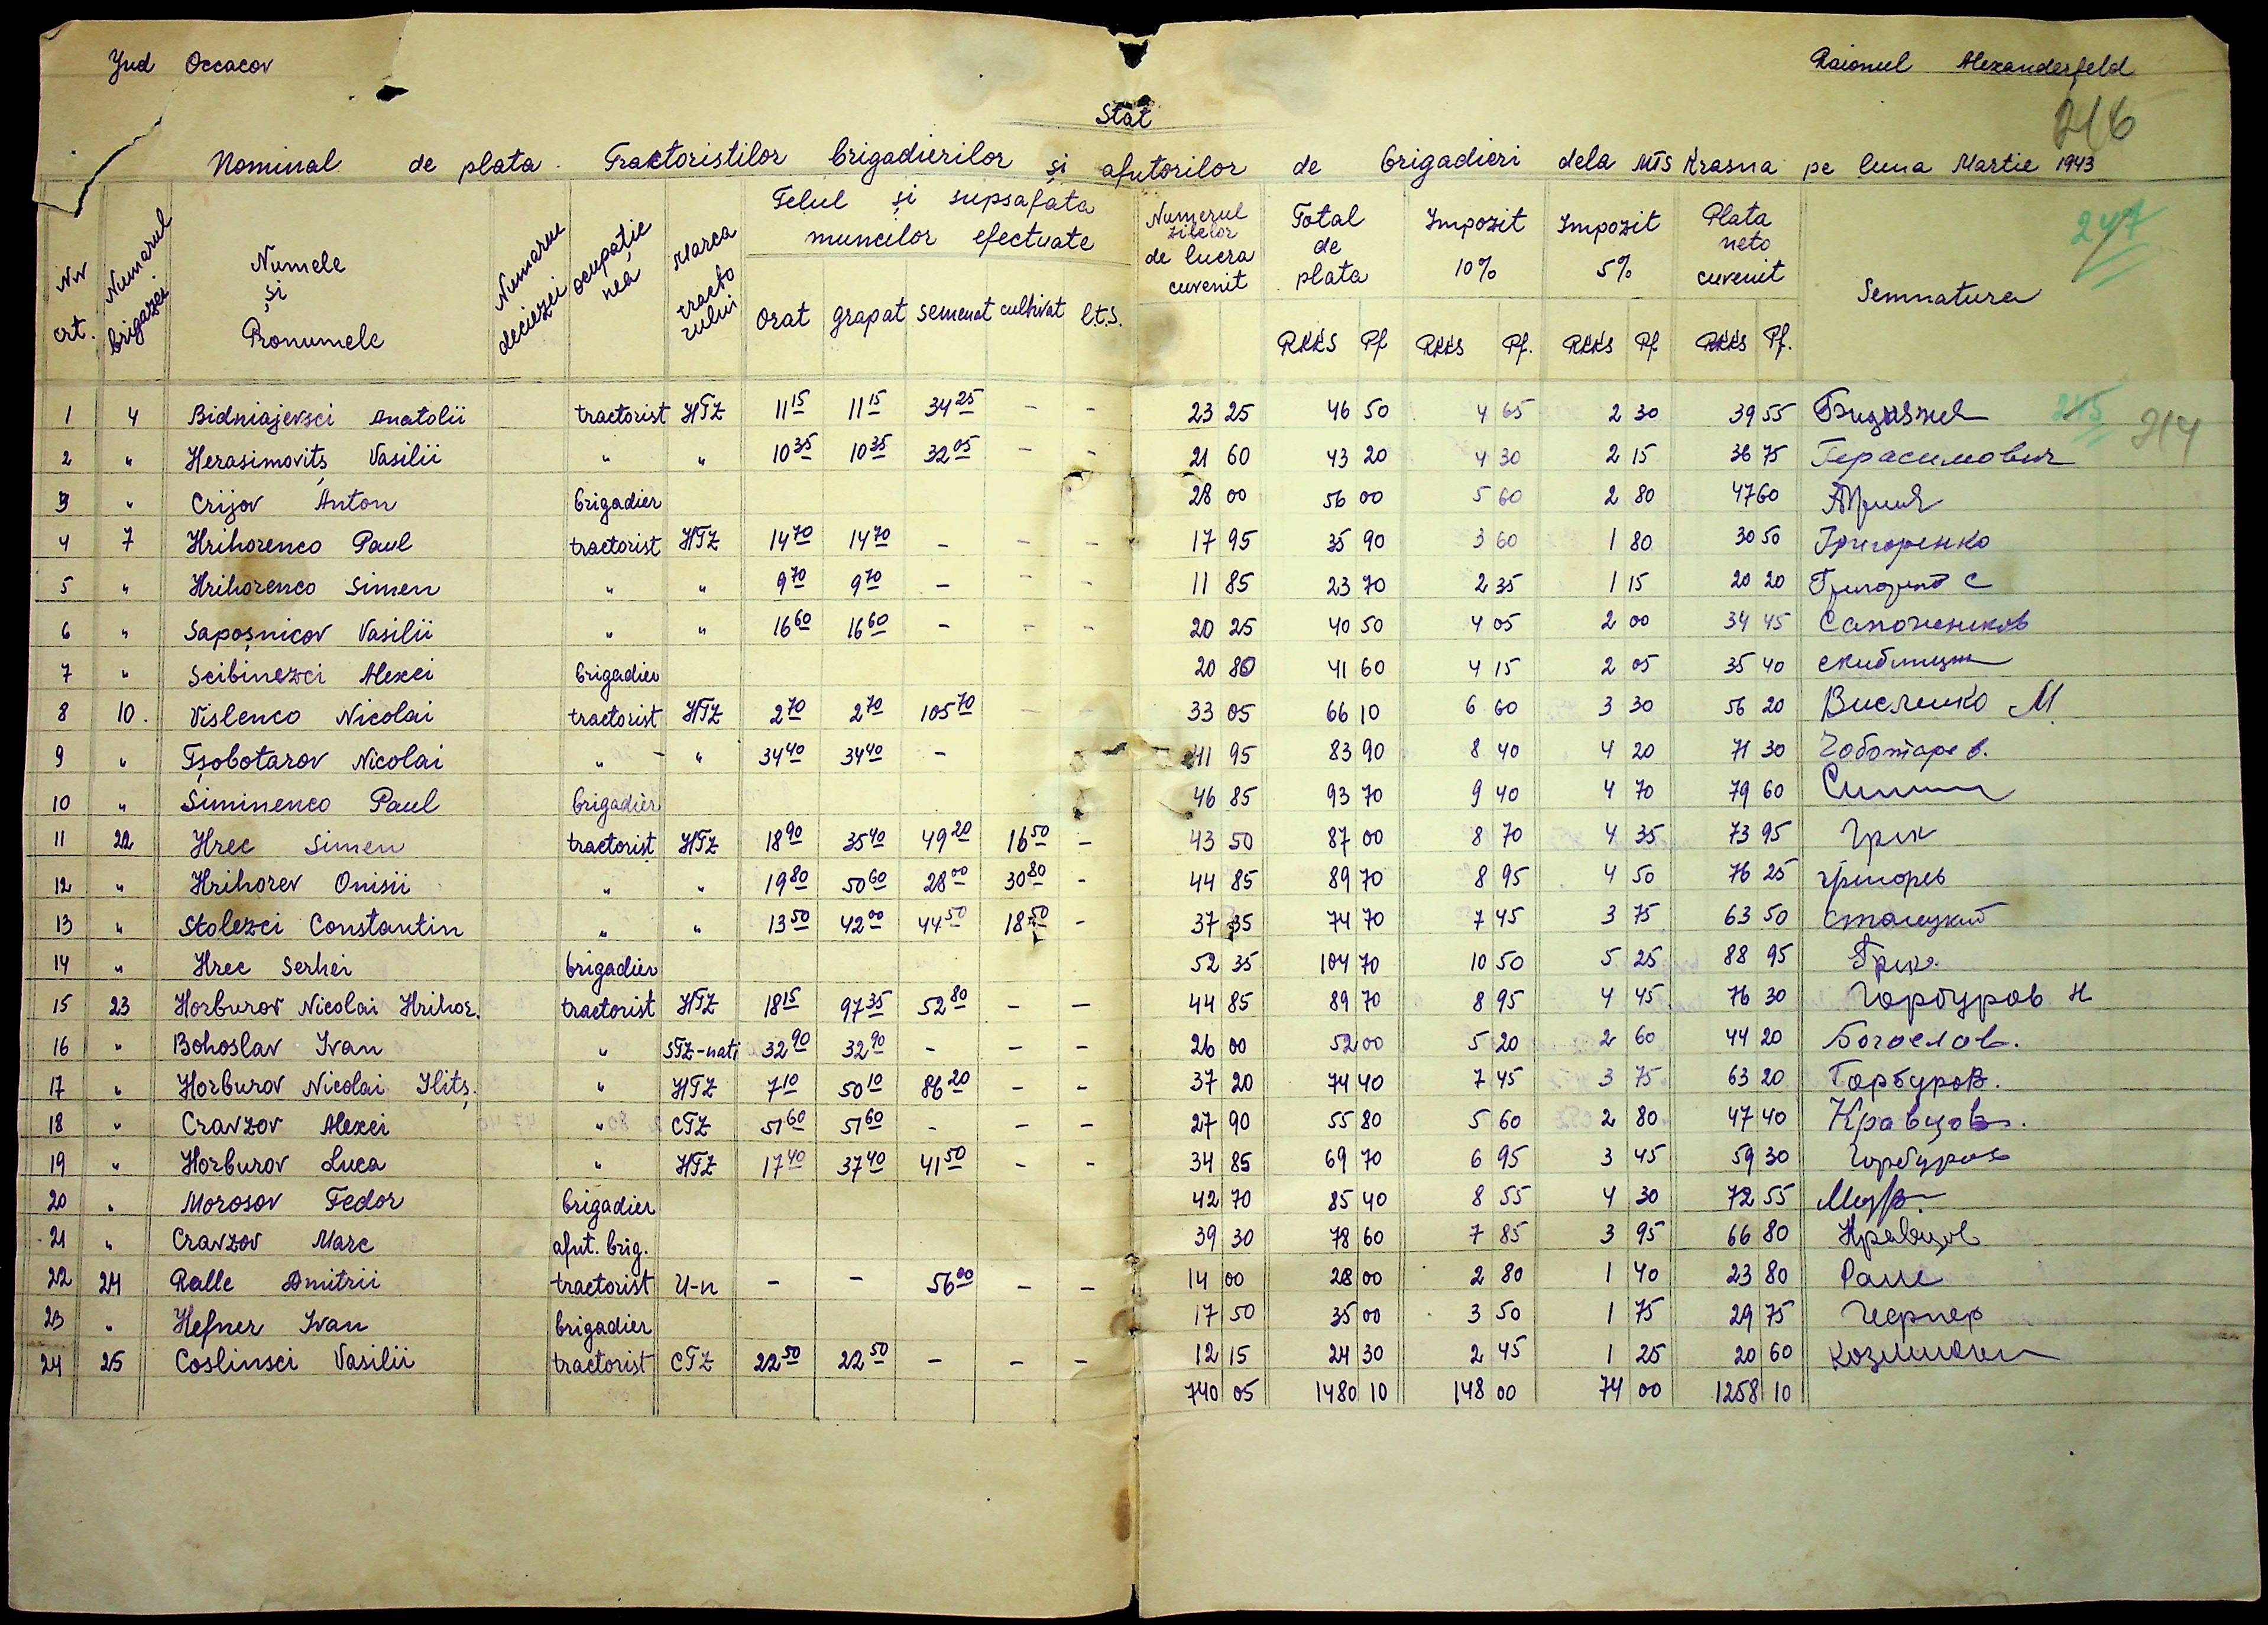 Jud Occacov
Raionul Alexanderfeld
216
Stat
Nominal de plata Traktoristilor brigadierilor și afutorilor de brigadieri dela MTS Krasna pe luna Martie 1943
247
Nr crt. Numarul brigazei Numele și Pronumele Numarul deciezei ocupație nea Marca tracto rului Felul și supsafata muncilor efectuate Numerul zilelor de lucra cuvenit Total de plata Impozit 10% Impozit 5% Plata neto cuvenit Semnatura
orat grapat semenat cultivat l.t.s. RKKS Pf RKKS Pf. RKKS Pf RKKS Pf.
1 4 Bidniajevsci Anatolii tractorist HTZ 11 15 11 15 34 25 - - 23 25 46 50 4 65 2 30 39 55 245 214
2 " Herasimovitș Vasilii " " 10 35 10 35 32 05 - - 21 60 43 20 4 30 2 15 36 75 Герасимович
3 " Crijov Anton brigadier 28 00 56 00 5 60 2 80 47 60
4 7 Hrihorenco Paul tractorist HTZ 14 70 14 70 - - - 17 95 35 90 3 60 1 80 30 50 Григоренко
5 " Hrihorenco Simen " " 9 70 9 70 - - - 11 85 23 70 2 35 1 15 20 20 С
6 " Sapoșnicov Vasilii " " 16 60 16 60 - - - 20 25 40 50 4 05 2 00 34 45 Сапожников
7 " Scibinezci Alexei brigadier 20 80 41 60 4 15 2 05 35 40
8 10. Vislenco Nicolai tractorist HTZ 2 70 2 70 105 70 - - 33 05 66 10 6 60 3 30 56 20 Висленко М
9 " Tșobotarov Nicolai " - " 34 40 34 40 - 41 95 83 90 8 40 4 20 71 30 Чоботарев.
10 " Siminenco Paul brigadier 46 85 93 70 9 40 4 70 79 60
11 22 Hrec Simen tractorist HTZ 18 90 35 40 49 20 16 50 - 43 50 87 00 8 70 4 35 73 95 Грек
12 " Hrihorev Onisii " " 19 80 50 60 28 00 30 80 - 44 85 89 70 8 95 4 50 76 25 григорев
13 " Stolezci Constantin " " 13 50 42 00 44 50 18 50 - 37 35 74 70 7 45 3 75 63 50 Столецкий
14 " Hrec Serhei brigadier 52 35 104 70 10 50 5 25 88 95 Грек.
15 23 Horburov Nicolai Hrihor. tractorist HTZ 18 15 97 35 52 80 - - 44 85 89 70 8 95 4 45 76 30 Горбуров Н
16 " Bohoslav Ivan " STZ-nati 32 90 32 90 - - - 26 00 52 00 5 20 2 60 44 20 Богослов.
17 " Horburov Nicolai Ilitș. " HTZ 7 10 50 10 86 20 - - 37 20 74 40 7 45 3 75 63 20 Горбуров.
18 " Cravzov Alexei " CTZ 51 60 51 60 - - - 27 90 55 80 5 60 2 80 47 40 Кравцов.
19 " Horburov Luca " HTZ 17 40 37 40 41 50 - - 34 85 69 70 6 95 3 45 59 30 Горбуров
20 " Morosov Fedor brigadier 42 70 85 40 8 55 4 30 72 55
21 " Cravzov Marc afut. brig. 39 30 78 60 7 85 3 95 66 80 Кравцов
22 24 Ralle Dmitrii tractorist U-n - - 56 00 - - 14 00 28 00 2 80 1 40 23 80 Ралле
23 " Hefner Ivan brigadier 17 50 35 00 3 50 1 75 29 75
24 25 Coslinsci Vasilii tractorist CTZ 22 50 22 50 - - - 12 15 24 30 2 45 1 25 20 60
740 05 1480 10 148 00 74 00 1258 10